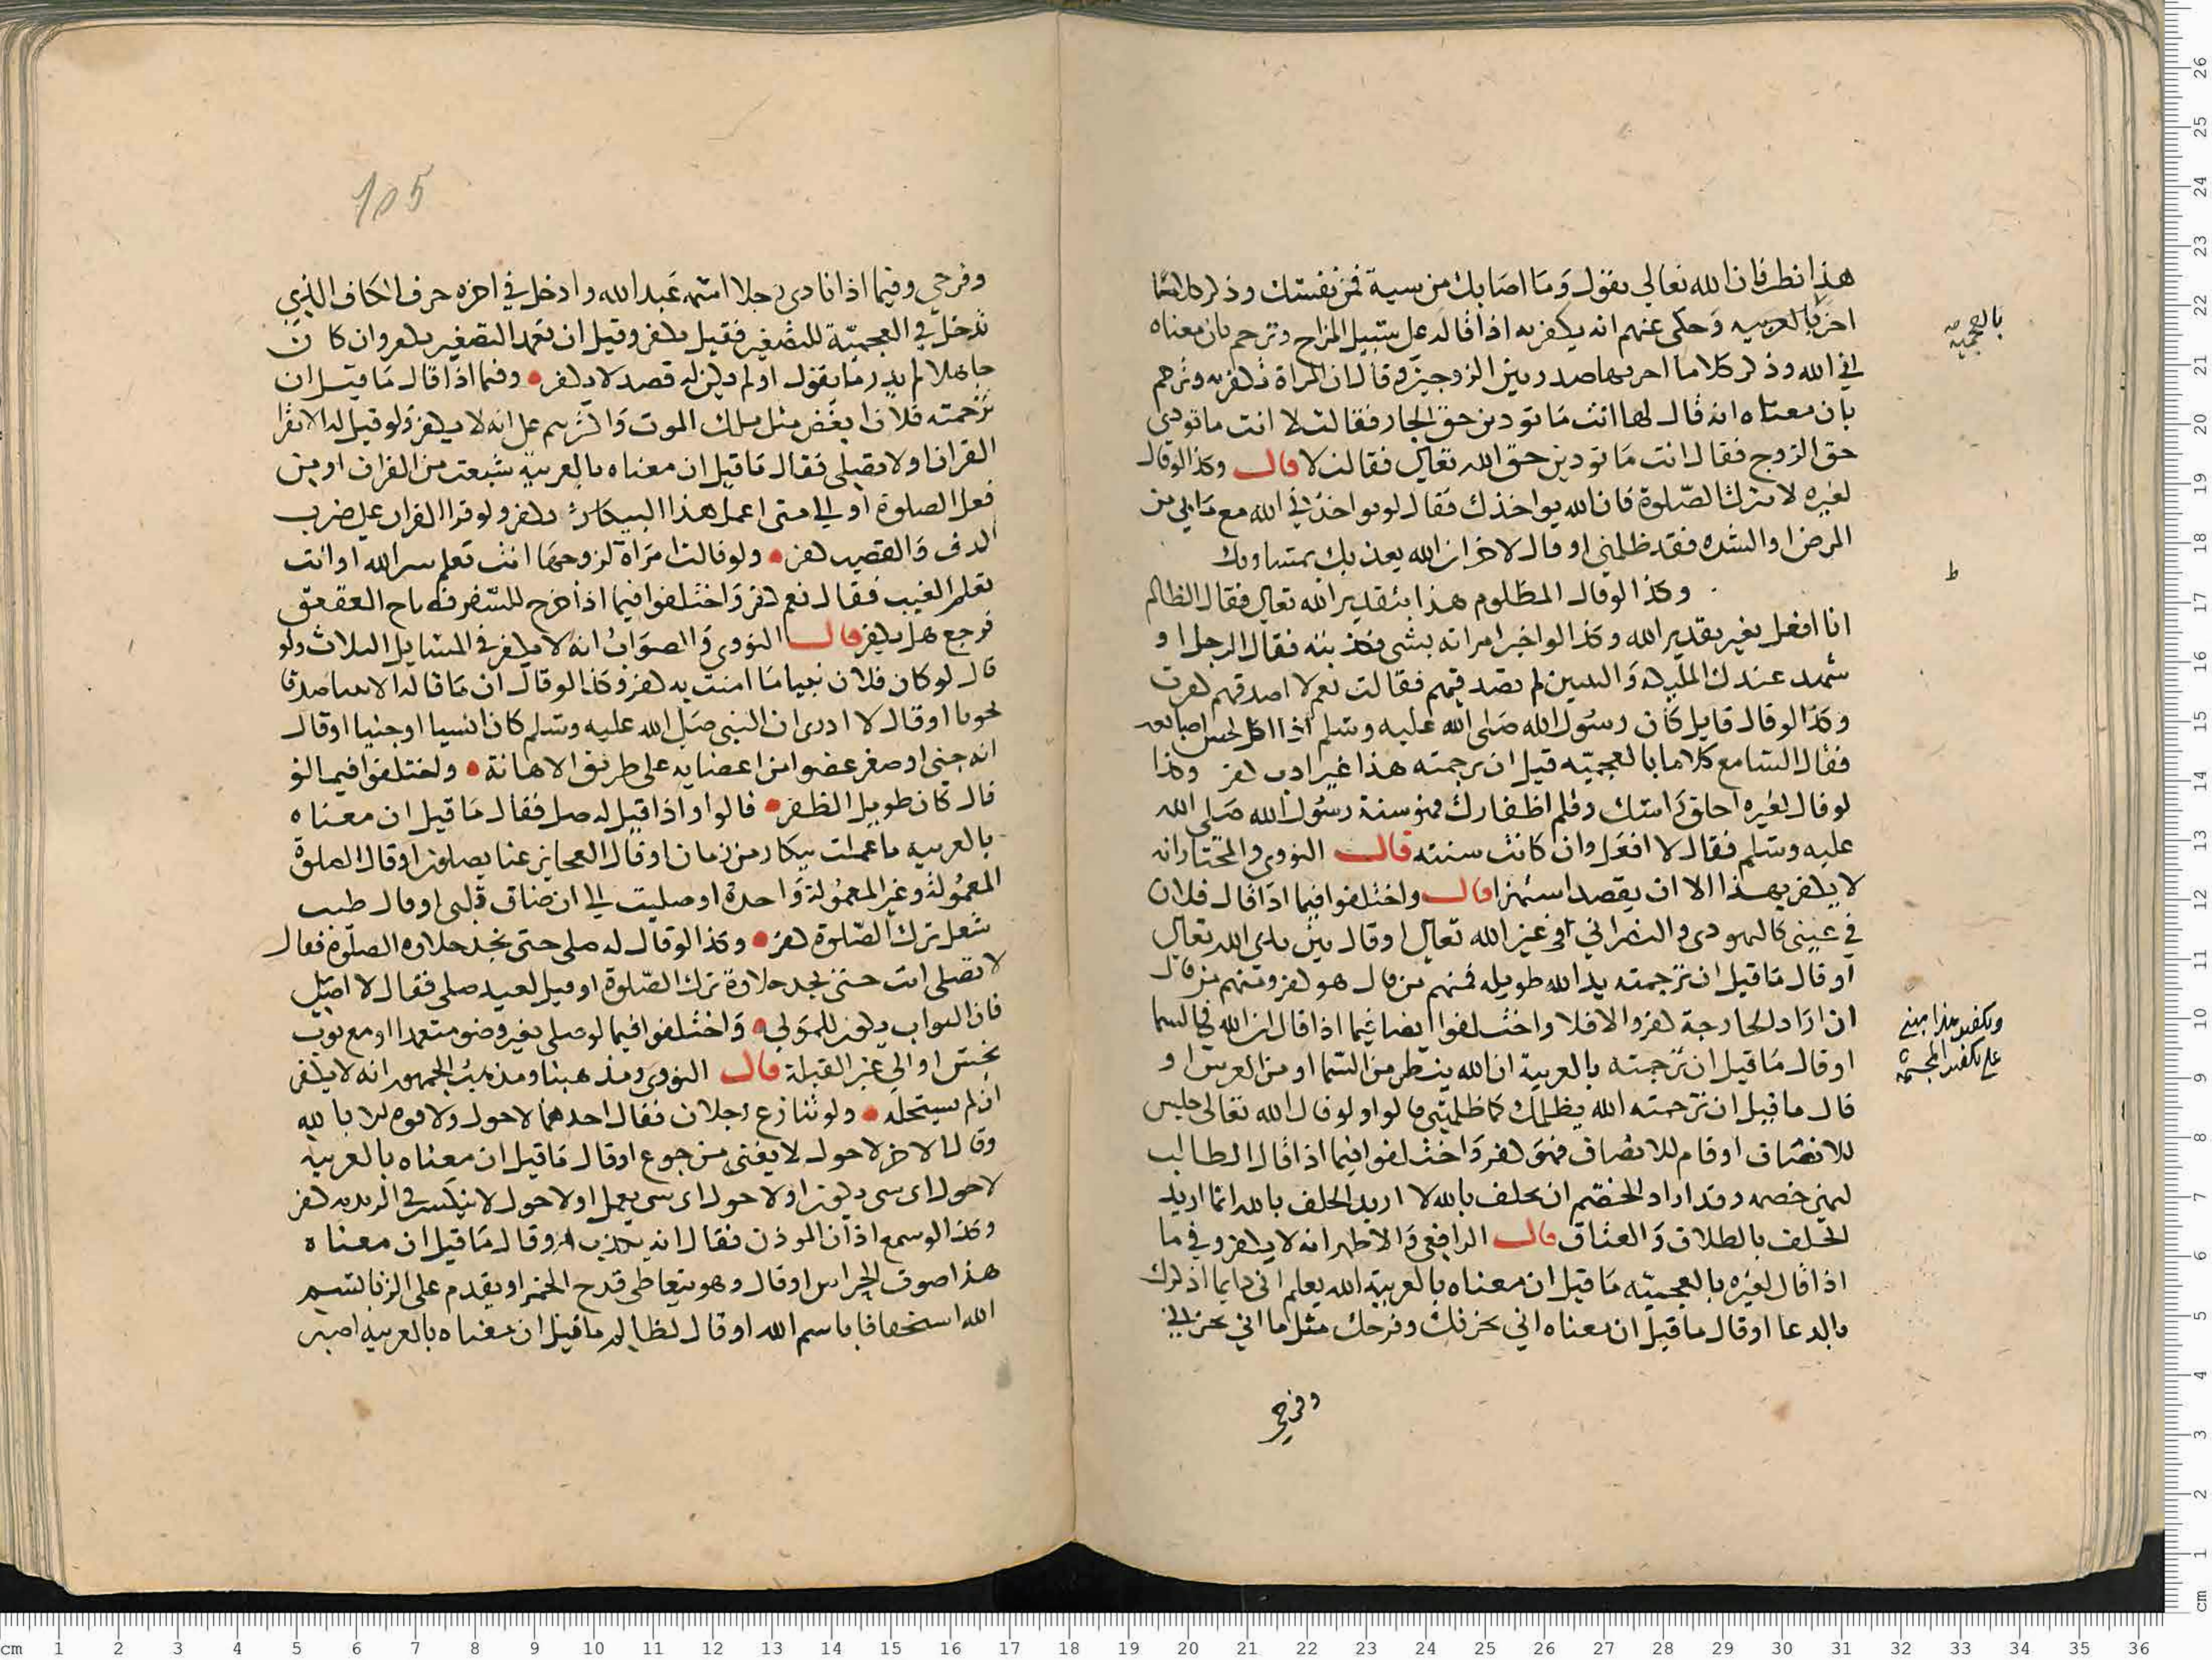 هذا نظر فان الله تعالى يقول وما اصابك من سية فمن نفسك وذكر كلاما
اخر بالعربيه وحكى عنهم انه يكفر به اذا قاله على سبيل المزاح وترجم بان معناه
بالعجميه صح
الله وذكر كلاما اخر بها صدر بين الزوجين وقال ان المراة تكفر به وترجم
بان معناه انه قال لها انت ما تودين حق الجار فقالت لا انت ما تودى
حق الزوج فقال انت ما تودين حق الله تعالى فقالت لا قال وكذا لو قال
لغيره لا تترك الصلوة فان الله يواخذك فقال لو يواخذني الله مع ما بي من
المرض او الشده فقد ظلمني او قال لاخر ان الله يعذبك
ط
وكذا لو قال المظلوم هذا بتقدير الله تعالى فقال الظالم
انا افعل بغير تقدير الله وكذا لو اخبر امراته بشى فكذبته فقال الرجل او
شهد عندك الملايكة والنبيين لم تصدقيهم فقالت نعم لا اصدقهم كفرت
وكذا لو قال قايل كان رسول الله صلى الله عليه وسلم اذا اكل لحس اصابعه
فقال السامع كلاما بالعجميه قيل ان ترجمته هذا غير ادب كفر وكذا
لو قال لغيره احلق راسك وقلم اظفارك فهو سنة رسول الله صلى الله
عليه وسلم فقال لا افعل وان كانت سنته قال النووى والمختار انه
لا يكفر بهذا الا ان يقصد استهزا قال واختلفوا فيما اذا قال فلان
في عينى كاليهودى والنصراني في عين الله تعالى او قال بين يدى الله تعالى
او قال ما قيل ان ترجمته يد الله طويله فمنهم من قال هو كفر ومنهم من قال
ان اراد الجارحة كفر والا فلا واختلفوا ايضا فيما اذا قال ان الله في السما
وتكفير هذا مبنى
على تكفير المجسمة
او قال ما قيل ان ترجمته بالعربية ان الله ينظر من السما او من العرش او
قال ما قيل ان ترجمته الله يظلمك كما ظلمتني قالوا ولو قال الله تعالى جلس
للانصاف او قام للانصاف فهو كفر واختلفوا فيما اذا قال الطالب
ليمين خصمه وقد اراد الخصم ان يحلف بالله لا اريد الحلف بالله انما اريد
الحلف بالطلاق والعتاق قال الرافعي والاظهر انه لا يكفر وفي ما
اذا قال لغيره بالعجميه ما قيل ان معناه بالعربية الله يعلم اني دايما اذكرك
بالدعا او قال ما قيل ان معناه اني بحزنك وفرحك مثل ما اني بحزني
وفرحي
105
وفرحي وفيما اذا نادى رجلا اسمه عبد الله وادخل في اخره حرف الكاف الذي
تدخل في العجمية للتصغير فقيل يكفر وقيل ان تعمد التصغير يكفر وان كان
جاهلا لم يدر ما يقول اولم يكن له قصد لا يكفر وفيما اذا قال ما قيل ان
ترجمته فلان ابغض مثل ملك الموت واكثرهم على انه لا يكفر ولو قيل له الا تقرا
القران او لا تصلى فقال ما قيل ان معناه بالعربية شبعت من القران او من
فعل الصلوة او الى متى اعمل هذا البيكار كفر ولو قرا القران على ضرب
الدف والقضيب كفر ولو قالت امراة لزوجها انت تعلم سر الله او انت
تعلم الغيب فقال نعم كفر واختلفوا فيما اذا خرج للسفر فصاح العقعق
فرجع هل يكفر قال النووى والصواب انه لا يكفر في المسايل الثلاث ولو
قال لو كان فلان نبيا ما امنت به كفر وكذا لو قال ان ما قاله الانبيا صدقا
نجونا او قال لا ادرى ان النبي صلى الله عليه وسلم كان انسيا او جنيا او قال
انه جني او صغر عضوا من اعضايه على طريق الاهانة واختلفوا فيما لو
قال كان طويل الظفر قالوا واذا قيل له صل فقال ما قيل ان معناه
بالعربيه ما عملت بيكار من زمان او قال العجايز عنا يصلون او قال الصلوة
المعمولة وغير المعمولة واحدة او صليت الى ان ضاق قلبي او قال طيب
شغل ترك الصلوة كفر وكذا لو قال له صلى حتى تجد حلاوه الصلوة فقال
لا تصلى انت حتى تجد حلاوة ترك الصلوة او قيل لعبد صلى فقال لا اصلى
فان الثواب يكون للمولى واختلفوا فيما لو صلى بغير وضو متعمدا او مع ثوب
نجس او الى غير القبلة قال النووى ومذهبنا ومذهب الجمهور انه لا يكفر
ان لم يستحله ولو تنازع رجلان فقال احدهما لا حول ولا قوه الا بالله
وقال الاخر لا حول لا يغنى من جوع او قال ما قيل ان معناه بالعربيه
لا حول اى شى يكون او لا حول اى شى يعمل او لا حول لا ينكسر في كفر
وكذا لو سمع اذان الموذن فقال انه يكذب او قال ما قيل ان معناه
هذا صوت الجراس او قال وهو يتعاطى قدح الخمر او يقدم على الزنا بسم
الله استخفافا باسم الله او قال لظالم ما قيل ان معناه بالعربيه اصبر